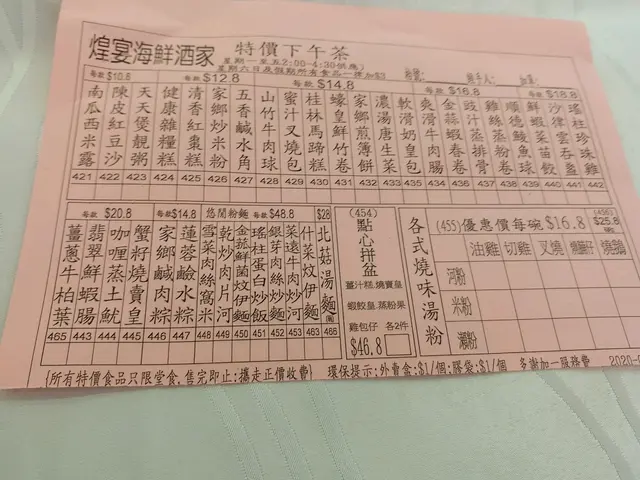 煌宴海鮮酒家 特價下午茶
星期一至五2:00-4:30供應)
星期六日及假期所有食品一律加$3
每款$10.8 每款$12.8 每款$14.8 每款$16.8 每款$18.8
南瓜西米露
陳皮紅豆沙
天天煲靚粥
健康雜糧糕
清香紅棗糕
家鄉炒米粉
五香鹹水角
山竹牛肉球
蜜汁叉燒包
桂林馬蹄糕
蠔皇鮮竹卷
家鄉煎薄餅
濃湯唐生菜
軟滑奶皇包
爽滑牛肉腸
金蒜蝦春卷
豉汁蒸排骨
雞絲粉卷
順德魚腐
鮮蝦菜苗餃
沙律雲吞
瑤柱珍珠雞
421 422 423 424 425 426 427 428 429 430 431 432 433 435 436 437 438 439 440 441 442
每款$20.8 每款$14.8 悠閒粉麵 每款$48.8 $28
薑蔥牛柏葉
翡翠鮮蝦腸
咖喱蒸土魷
蟹籽燒賣皇
家鄉鹹肉粽
蓮蓉鹼水粽
雪菜肉絲窩米
乾炒肉片河
金菇鮮菌炆伊麵
瑤柱蛋白炒飯
銀芽肉絲炒麵
菜遠牛肉炒河
什菜炆伊麵
北菇湯麵
465 443 444 445 446 447 448 449 450 451 452 453 463 466
(454)
點心拼盆
薑汁糕.燒賣皇
蝦餃皇.蒸粉果
雞包仔 各2件
$46.8
各式燒味湯粉
(455)優惠價每碗$16.8 (456) $25.8
油雞 切雞 叉燒 燒鵝
河粉
米粉
瀨粉
{所有特價食品只限堂食,售完即止;攜走正價收費} 環保提示:外賣盒:$1/個;膠袋:$1/個 多謝加一服務費 2020-0